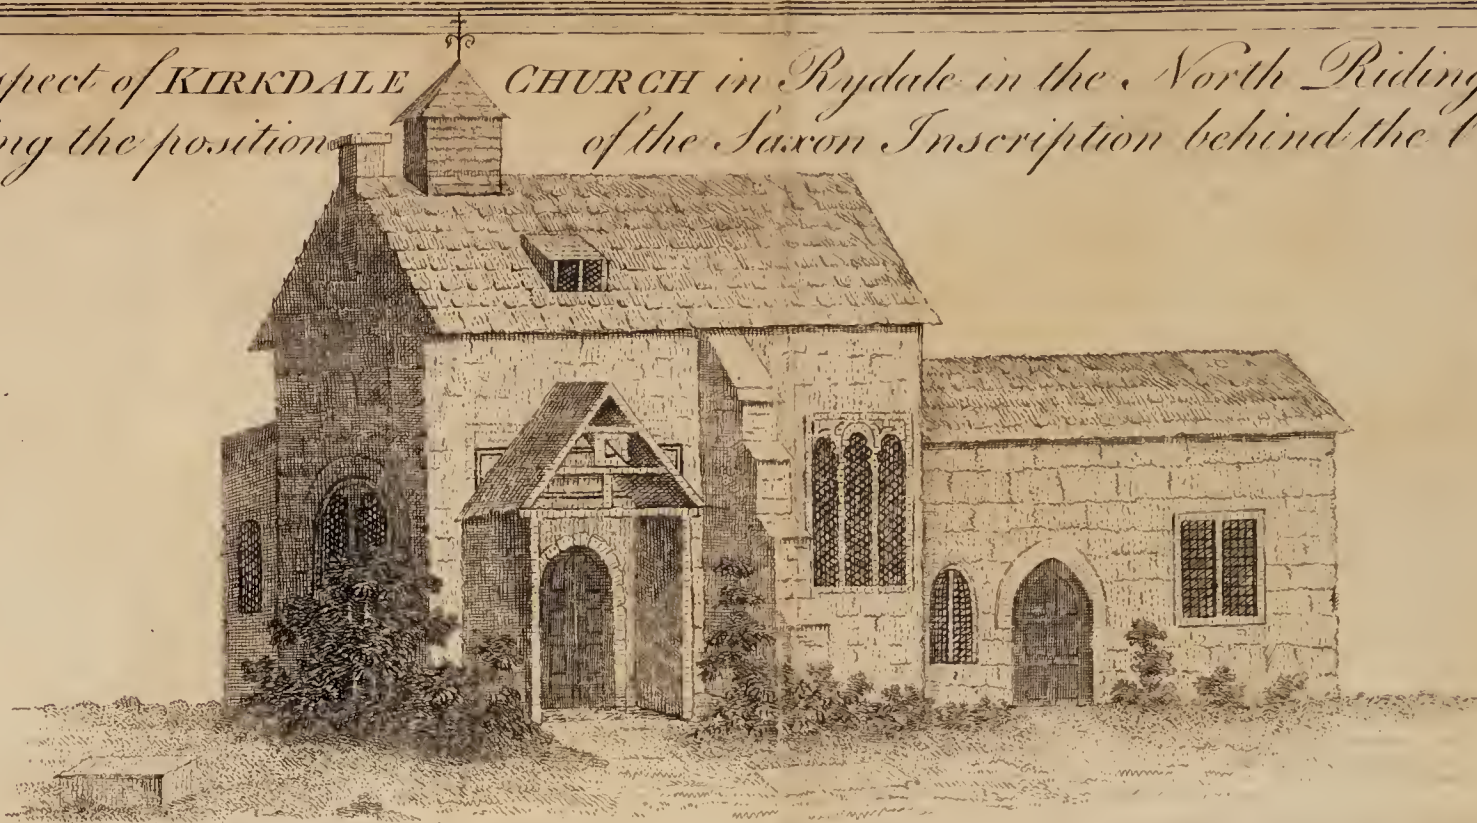 spect of KIRKDALE CHURCH in Rydale in the North Riding
ng the position of the Saxon Inscription behind the